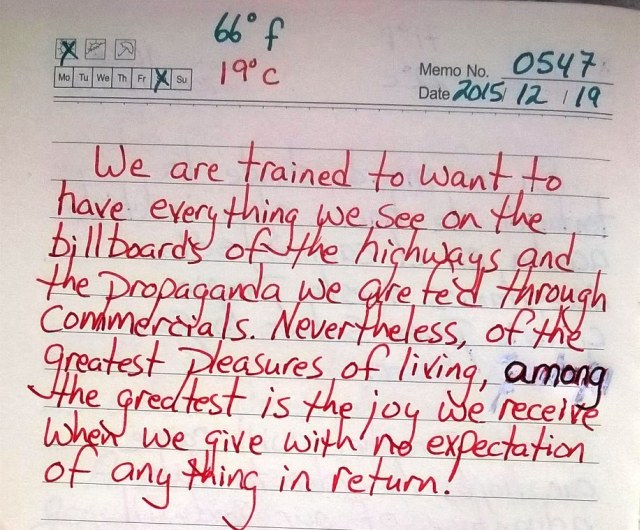 66° f
19° c
Mo Tu We Th Fr Sa Su
Memo No. 0547
Date 2015/ 12 / 19
We are trained to want to
have everything we see on the
billboards of the highways and
the propaganda we are fed through
Commercials. Nevertheless, of the
greatest pleasures of living, among
the greatest is the joy we receive
when we give with no expectation
of any thing in return!